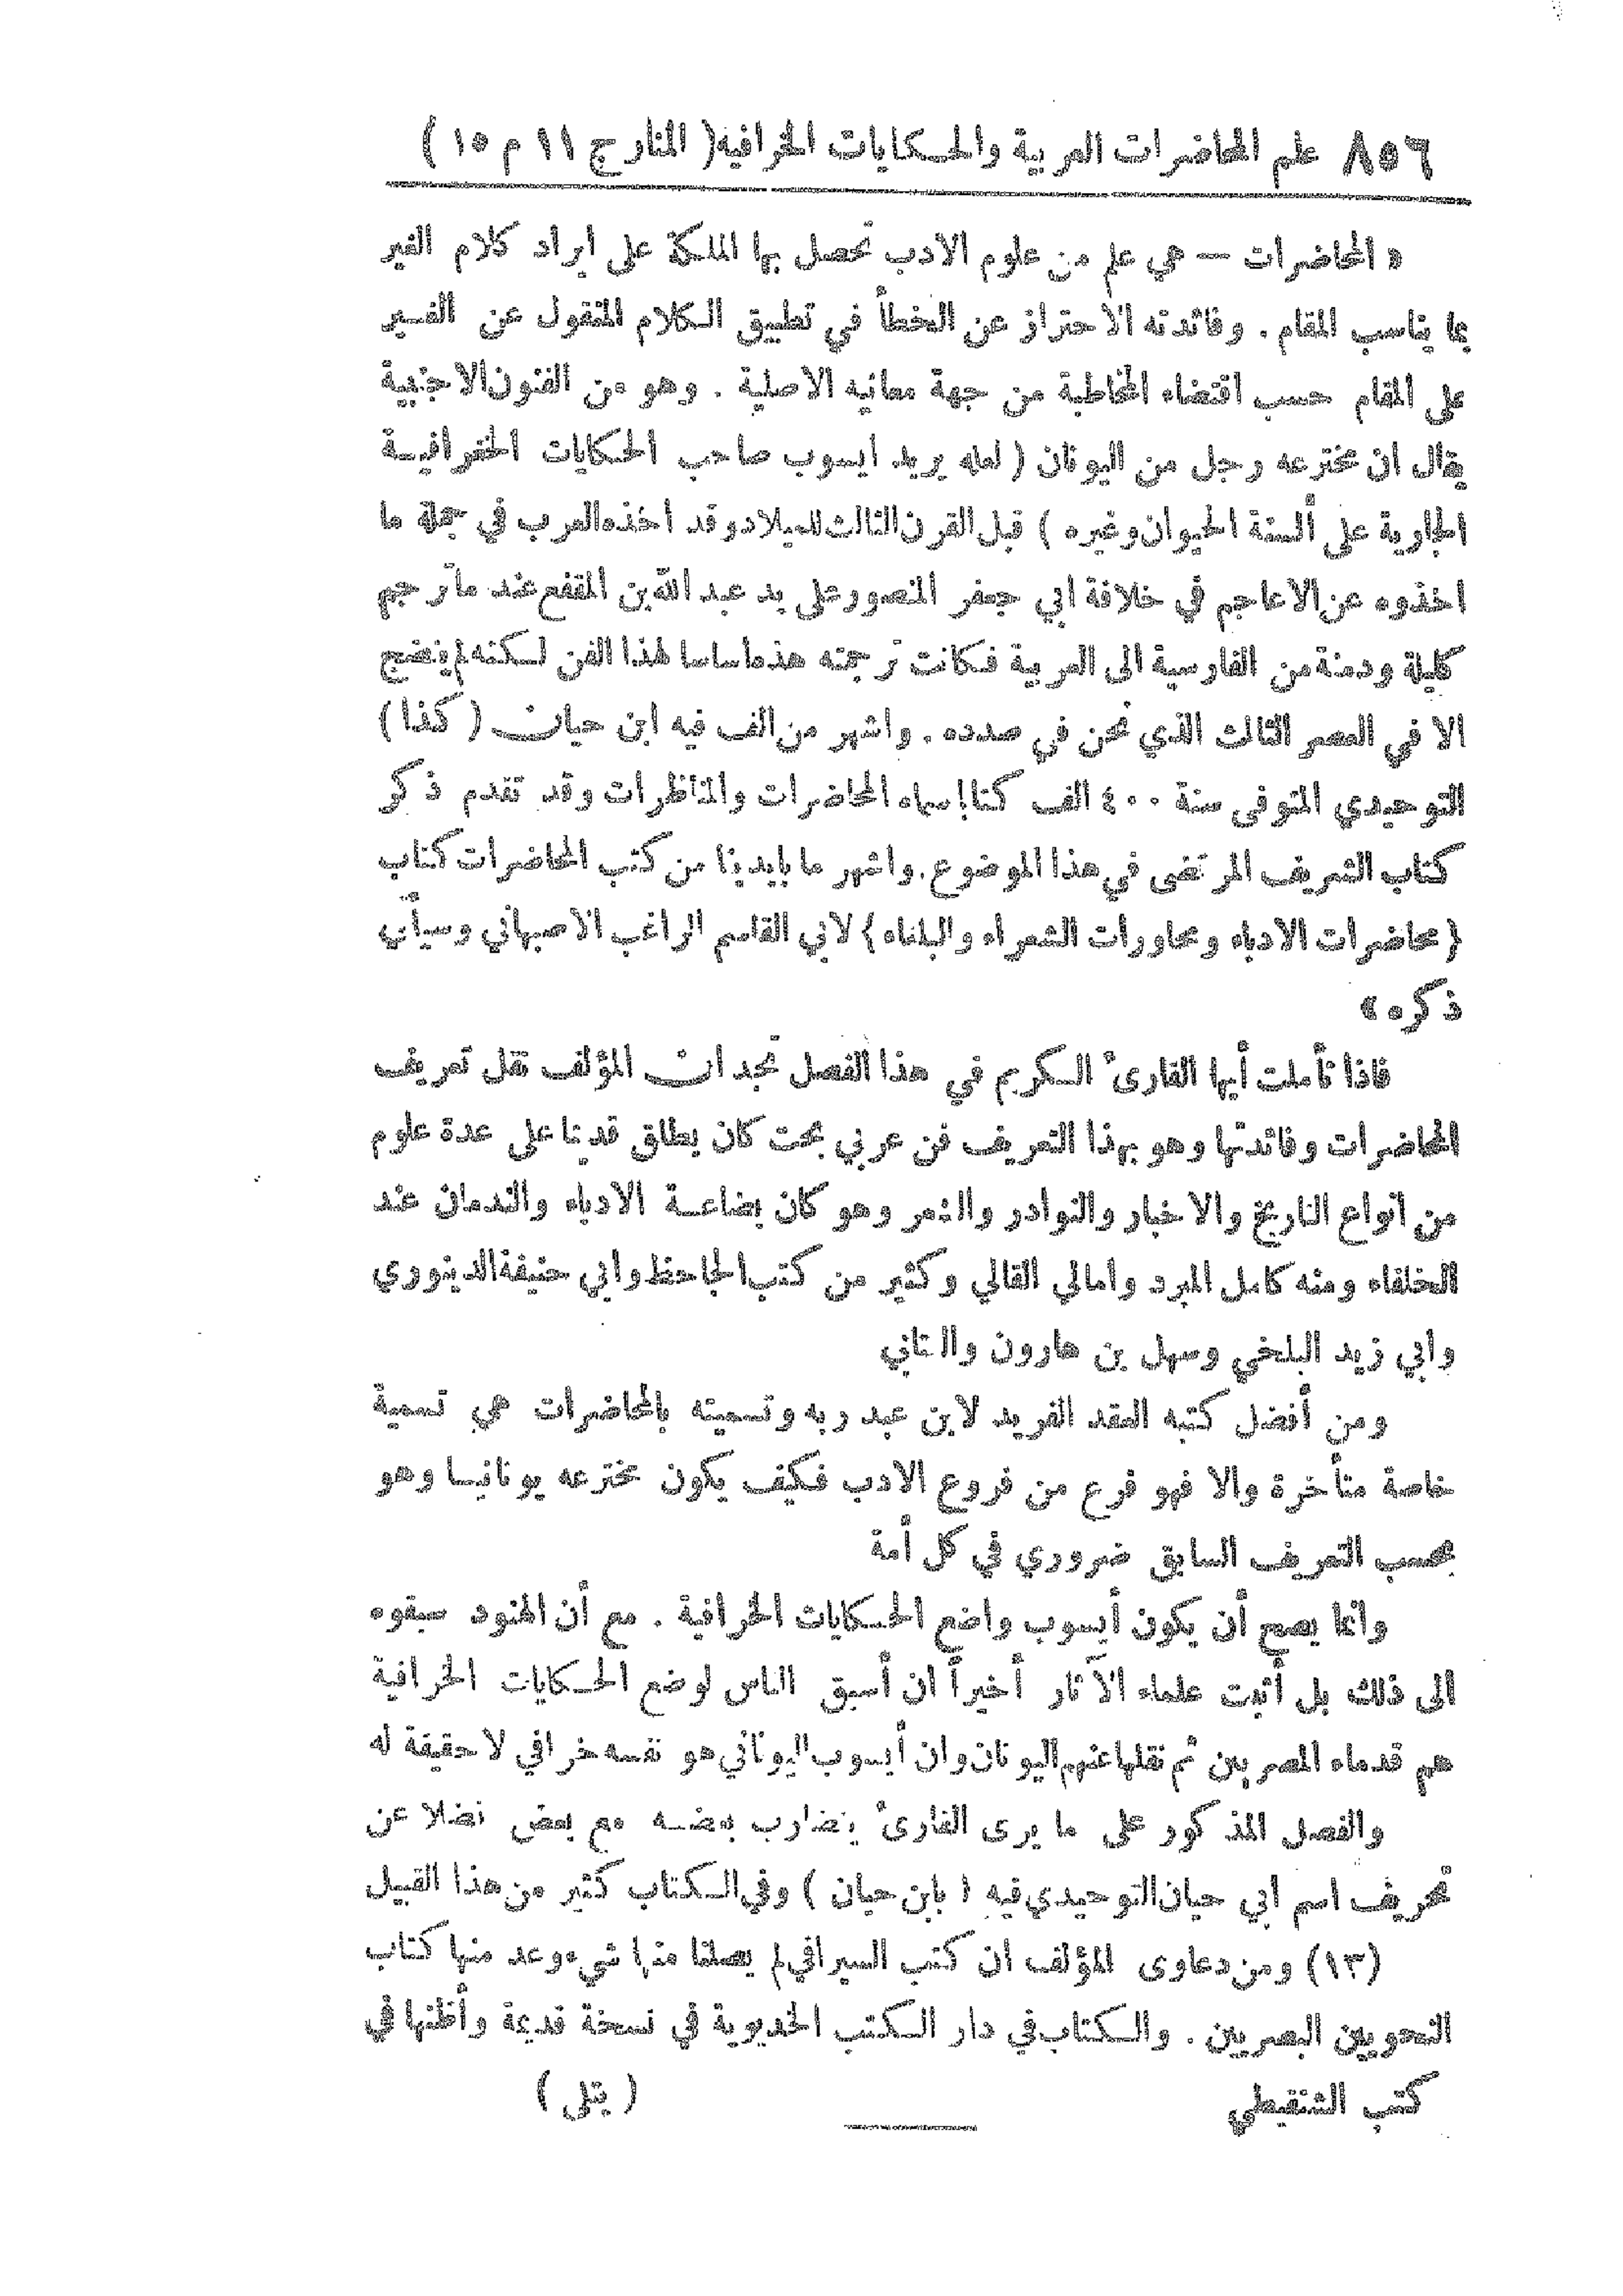 ٨٥٦ علم المحاضرات العربية والحكايات الخرافيه ( المنار ج ١١ م ١٥ )
« المحاضرات — هي علم من علوم الادب تحصل بها الملكة على ايراد كلام الغير
بما يناسب المقام . وفائدته الاحتراز عن الخطأ في تطبيق الكلام المنقول عن الغير
على المقام حسب اقتضاء المخاطبة من جهة معانيه الاصلية . وهو من الفنون الاجنبية
يقال ان مخترعه رجل من اليونان ( لعله يريد ايسوب صاحب الحكايات الخرافية
الجارية على ألسنة الحيوان وغيره ) قبل القرن الثالث للميلاد وقد اخذه العرب في جملة ما
اخذوه عن الاعاجم في خلافة ابي جعفر المنصور على يد عبد الله بن المقفع عند ما ترجم
كليلة ودمنة من الفارسية الى العربية فكانت ترجمته هذه أساسا لهذا الفن لكنه لم ينضج
الا في العصر الثالث الذي نحن في صدده . واشهر من الف فيه ابن حيان ( كذا )
التوحيدي المتوفى سنة ٤٠٠ الف كتابا سماه المحاضرات والمناظرات وقد تقدم ذكر
كتاب الشريف المرتضى في هذا الموضوع . واشهر ما بايدينا من كتب المحاضرات كتاب
{ محاضرات الادباء ومحاورات الشعراء والبلغاء } لابي القاسم الراغب الاصبهاني وسيأتي
ذكره »
فاذا تأملت أيها القارئ الكريم في هذا الفصل تجد ان المؤلف نقل تعريف
المحاضرات وفائدتها وهو بهذا التعريف فن عربي بحت كان يطلق قديما على عدة علوم
من انواع التاريخ والاخبار والنوادر والشعر وهو كان بضاعة الادباء والندمان عند
الخلفاء ومنه كامل المبرد وامالي القالي وكثير من كتب الجاحظ وابي حنيفة الدينوري
وابي زيد البلخي وسهل بن هارون والتابي
ومن أفضل كتبه العقد الفريد لابن عبد ربه وتسميته بالمحاضرات هي تسمية
خاصة متأخرة والا فهو فرع من فروع الادب فكيف يكون مخترعه يونانيا وهو
بحسب التعريف السابق ضروري في كل أمة
وانما يصح أن يكون أيسوب واضع الحكايات الخرافية . مع أن الهنود سبقوه
الى ذلك بل أثبت علماء الآثار أخيراً ان أسبق الناس لوضع الحكايات الخرافية
هم قدماء المصريين ثم نقلها عنهم اليونان وان أيسوب اليوناني هو نفسه خرافي لا حقيقة له
والفصل المذكور على ما يرى القارئ يتضارب بعضه مع بعض فضلا عن
تحريف اسم أبي حيان التوحيدي فيه ( بابن حيان ) وفي الكتاب كثير من هذا القبيل
(١٣) ومن دعاوى المؤلف ان كتب السيرافي لم يصلنا منها شيء وعد منها كتاب
النحويين البصريين . والكتاب في دار الكتب الخديوية في نسخة قديمة وأظنها في
كتب الشنقيطي ( يتلى )